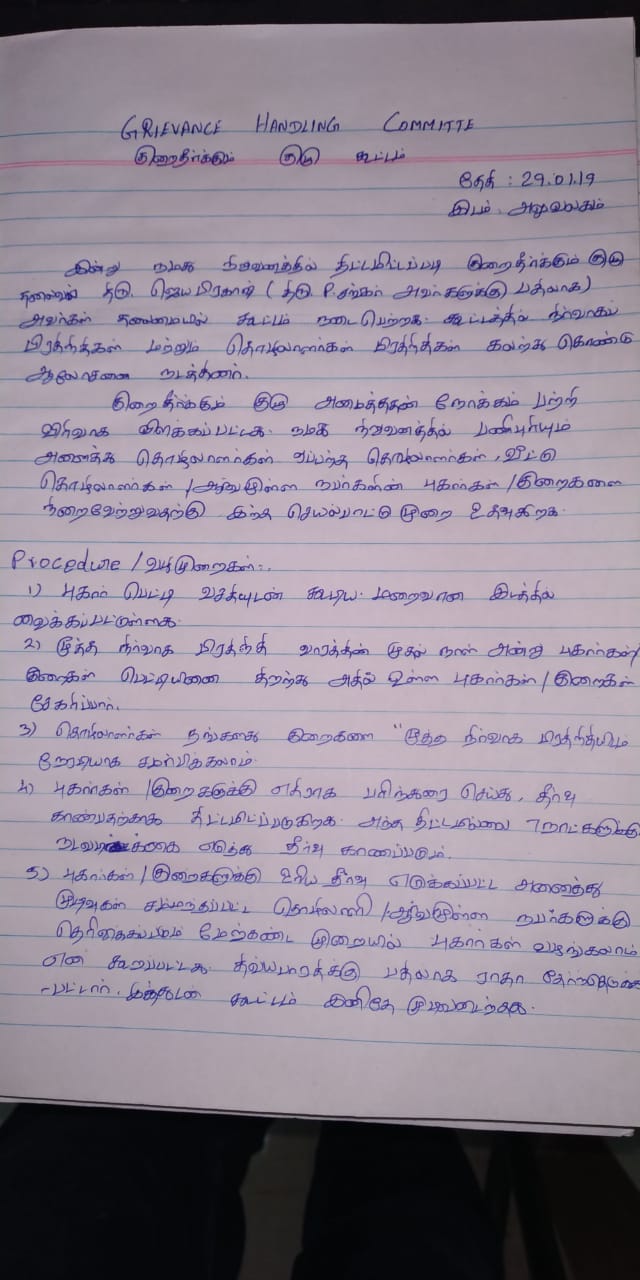 GRIEVANCE HANDLING COMMITTE
குறைதீர்க்கும் குழு கூட்டம்
தேதி : 29.01.19
இடம் : அலுவலகம்
இன்று நமது நிறுவனத்தில் திட்டமிட்டப்படி குறைதீர்க்கும் குழு
தலைவர் திரு. ஜெயபிரகாஷ் ( திரு. P. சங்கர் அவர்களுக்கு பதிலாக)
அவர்கள் தலைமையில் கூட்டம் நடைபெற்றது. கூட்டத்தில் நிர்வாகப்
பிரதிநிதிகள் மற்றும் தொழிலாளர்கள் பிரதிநிதிகள் கலந்து கொண்டு
ஆலோசனை நடத்தினர்.
குறைதீர்க்கும் குழு அமைத்ததன் நோக்கம் பற்றி
விரிவாக விளக்கப்பட்டது. நமது நிறுவனத்தில் பணிபுரியும்
அனைத்து தொழிலாளர்கள் ஒப்பந்த தொழிலாளர்கள், வீட்டு
தொழிலாளர்கள் / ஆர்வமுள்ள நபர்களின் புகார்கள் / குறைகளை
நிறைவேற்றுவதற்கு இந்த செயல்பாட்டு முறை உதவுகிறது.
Procedure / வழிமுறைகள் :.
1) புகார் பெட்டி வசதியுடன் கூடிய மறைவான இடத்தில்
வைக்கப்பட்டுள்ளது.
2) மூத்த நிர்வாக பிரதிநிதி வாரத்தின் முதல் நாள் அன்று புகார்கள்/
குறைகள் பெட்டியினை திறந்து அதில் உள்ள புகார்கள் / குறைகள்
சேகரிப்பார்.
3) தொழிலாளர்கள் தங்களது குறைகளை "மூத்த நிர்வாக பிரதிநிதியிடம்
நேரடியாக சமர்பிக்கலாம்.
4) புகார்கள் / குறைகளுக்கு எதிராக பரிந்துரை செய்து, தீர்வு
காண்பதற்காக திட்டமிடப்படுகிறது. அந்த திட்டமானவை 7 நாட்களுக்கு
நடவடிக்கை எடுத்து தீர்வு காணப்படும்.
5) புகார்கள் / குறைகளுக்கு உரிய தீர்வு எடுக்கப்பட்ட அனைத்து
முடிவுகள் சம்மந்தப்பட்ட தொழிலாளி / ஆர்வமுள்ள நபர்களுக்கு
தெரிவிக்கப்படும் மேற்கண்ட முறையில் புகார்கள் வழங்கலாம்
என கூறப்பட்டது. திவ்யபாரதிக்கு பதிலாக ராதா தேர்ந்தெடுக்க
-பட்டார். இத்துடன் கூட்டம் இனிதே முடிவடைந்தது.